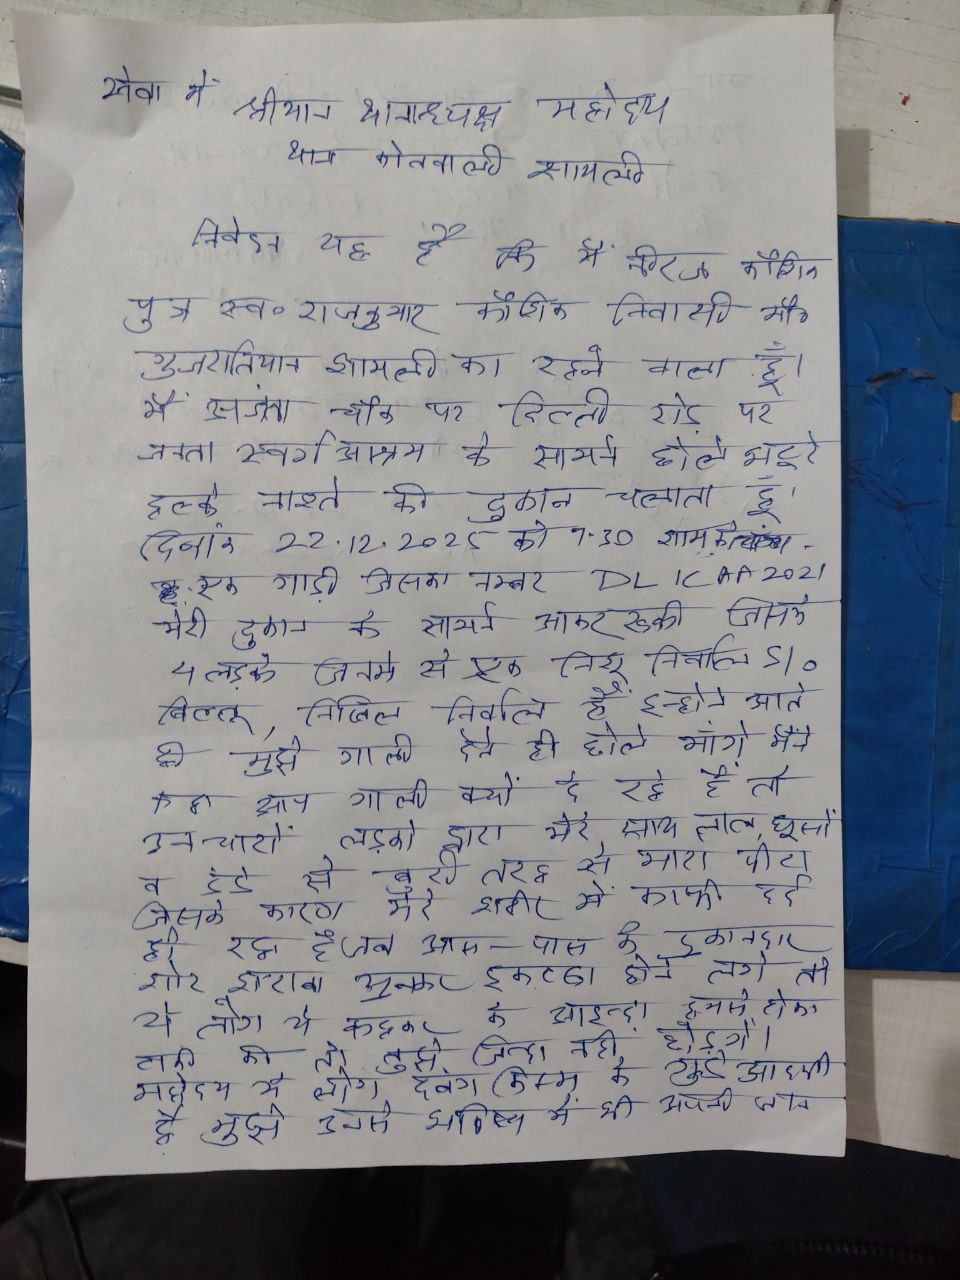 सेवा में
श्रीमान थानाध्यक्ष महोदय
थाना कोतवाली शामली
निवेदन यह है कि मैं नीरज कौशिक
पुत्र स्व० राजकुमार कौशिक निवासी मौ०
गुजरातियान शामली का रहने वाला हूँ।
मैं अजंता चौक पर दिल्ली रोड़ पर
जनता स्वर्ग आश्रम के सामने छोले भटूरे
हल्के नाश्ते की दुकान चलाता हूँ।
दिनांक 22.12.2025 को 7.30 शाम को
एक गाड़ी जिसका नम्बर DL 1C AA 2021
मेरी दुकान के सामने आकर रूकी जिसके
4 लड़के जिनमे से एक निशू निर्वाल S/o
बिल्लू, निखिल निर्वाल हैं इन्होने आते
ही मुझे गाली देते ही छोले मांगे मैंने
कहा आप गाली क्यों दे रहे हैं तो
उन चारों लड़को द्वारा मेरे साथ लात, घूसों
व डंडे से बुरी तरह से मारा पीटा
जिसके कारण मेरे शरीर में काफी दर्द
हो रहा है जब आस-पास के दुकानदार
शोर शराबा सुनकर इकट्ठा होने लगे तो
ये लोग ये कहकर के आइन्दा हमसे टोका
टाकी की तो तुझे जिन्दा नही छोड़गें।
महोदय ये लोग दबंग किस्म के गुंडे आदमी
है मुझे उनसे भविष्य में भी अपनी जान